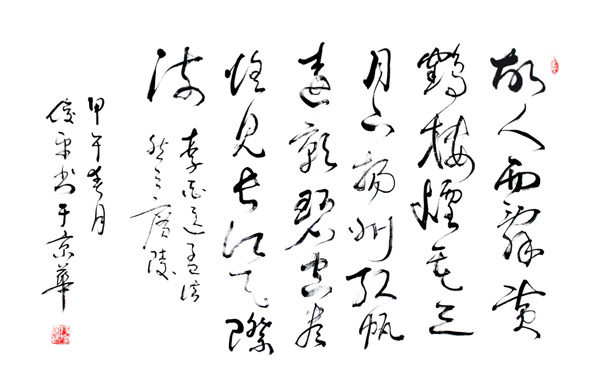 故人西辭黃
鶴樓煙花三
月下揚州孤帆
遠影碧空盡
惟見長江天際
流
李白送孟浩
然之廣陵
甲午春月
俊平书于京華